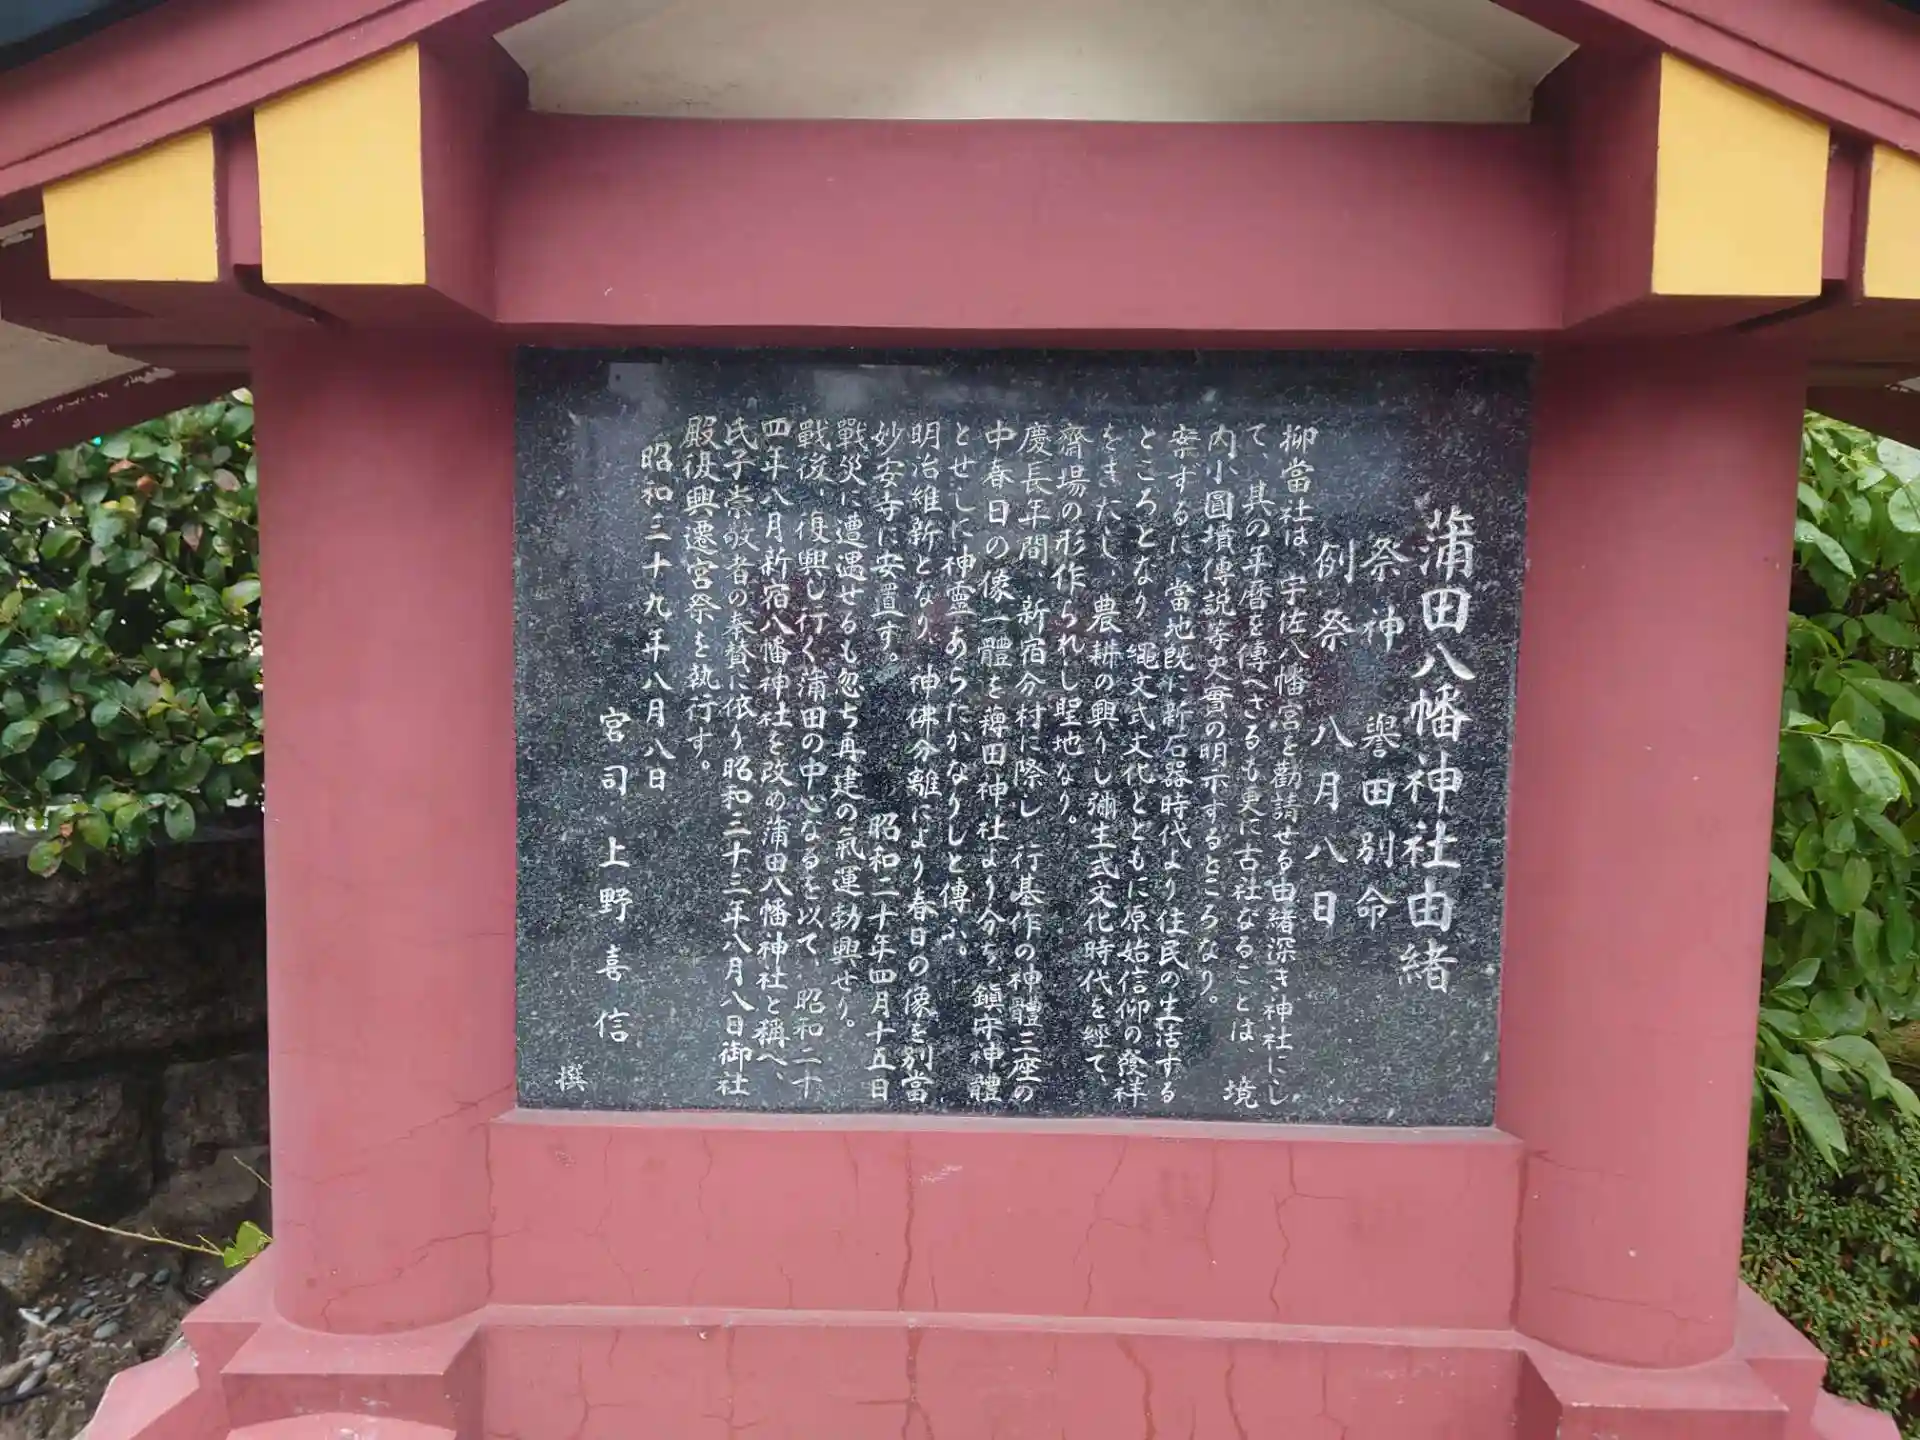 蒲田八幡神社由緒
祭神 譽田別命
例祭 八月八日
抑當社は、宇佐八幡宮を勸請せる由緒深き神社にし
て、其の年暦を傳へざるも更に古社なることは、境
内小圓墳傳説等史實の明示するところなり。
案ずるに、當地既に新石器時代より住民の生活する
ところとなり、縄文式文化とともに原始信仰の發祥
をきたし、農耕の興りし彌生式文化時代を經て、
齋場の形作られし聖地なり。
慶長年間、新宿分村に際し、行基作の神體三座の
中春日の像一體を薭田神社より分ち、鎭守神體
とせしに神靈あらたかなりしと傳ふ。
明治維新となり、神佛分離により春日の像を別當
妙安寺に安置す。 昭和二十年四月十五日
戰災に遭遇せるも忽ち再建の氣運勃興せり。
戰後、復興し行く蒲田の中心なるを以て、昭和二十
四年八月新宿八幡神社を改め蒲田八幡神社と稱へ、
氏子崇敬者の奉賛に依り昭和三十三年八月八日御社
殿復興遷宮祭を執行す。
昭和三十九年八月八日
宮司 上野喜信
撰